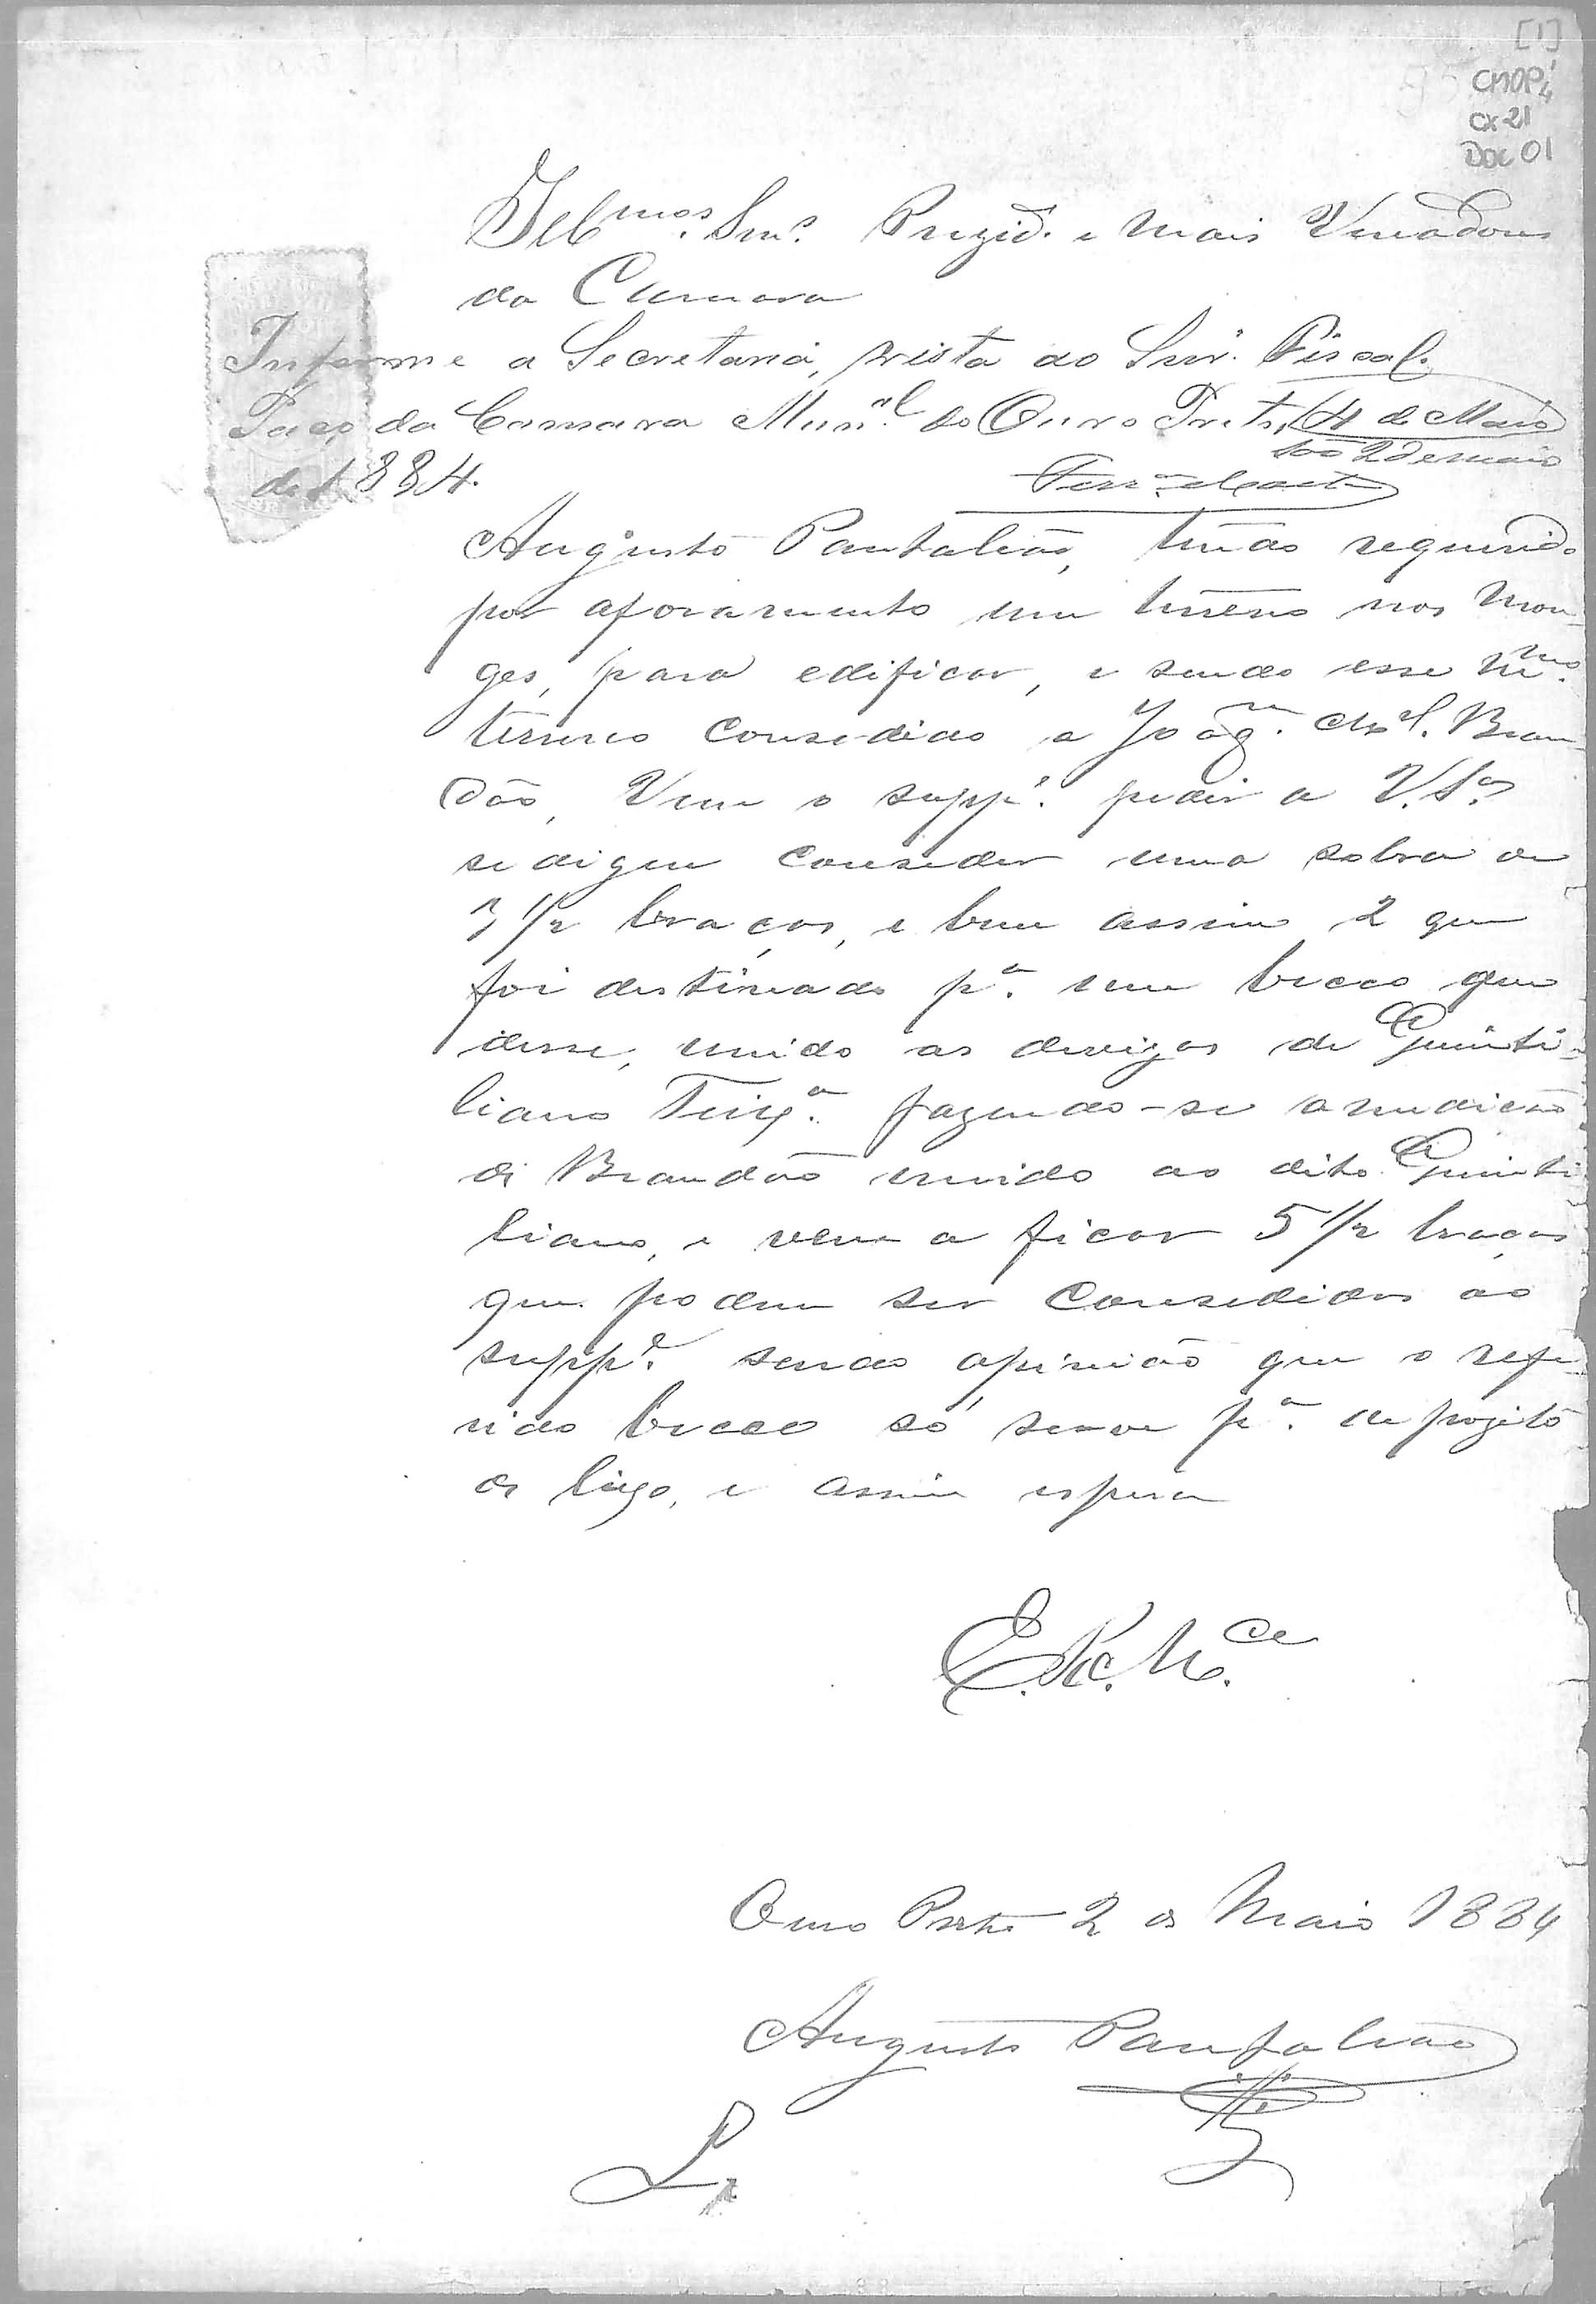 [1]
CMOP
CX 21
DOC 01
Illmos. Snrs. Prezide. e mais Vereadores
da Camara
Informe a Secretaria, vista ao Snr. Fiscal.
Paço da Camara Munal. do Ouro Preto, 4 de Maio
digo 2 de maio
de 1884.
Augusto Pantaleão, tendo requerido
por aforamento um terreno nos Mon-
ges, para edificar, e sendo esse mmo.
terreno consedido a Joaqm. Mel. Bran-
dão, Vem o suppe. pedir a V. Sas.
se digne conseder uma sobra de
3 1/2 braças, e bem assim 2 que
foi destinado pa. um becco que
desse, unido as devizas de Quinti-
liano Teixa. fazendo-se a medicão
de Brandão unido ao dito Quinti
liano, e vem a ficar 5 1/2 braças
que podem ser consedidas ao
suppe. sendo opinião que o refe
rido becco só serve pa. depozito
de lixo, e assim espera
E. R. Mce.
Ouro Preto 2 de Maio 1884
Augusto Pantaleão